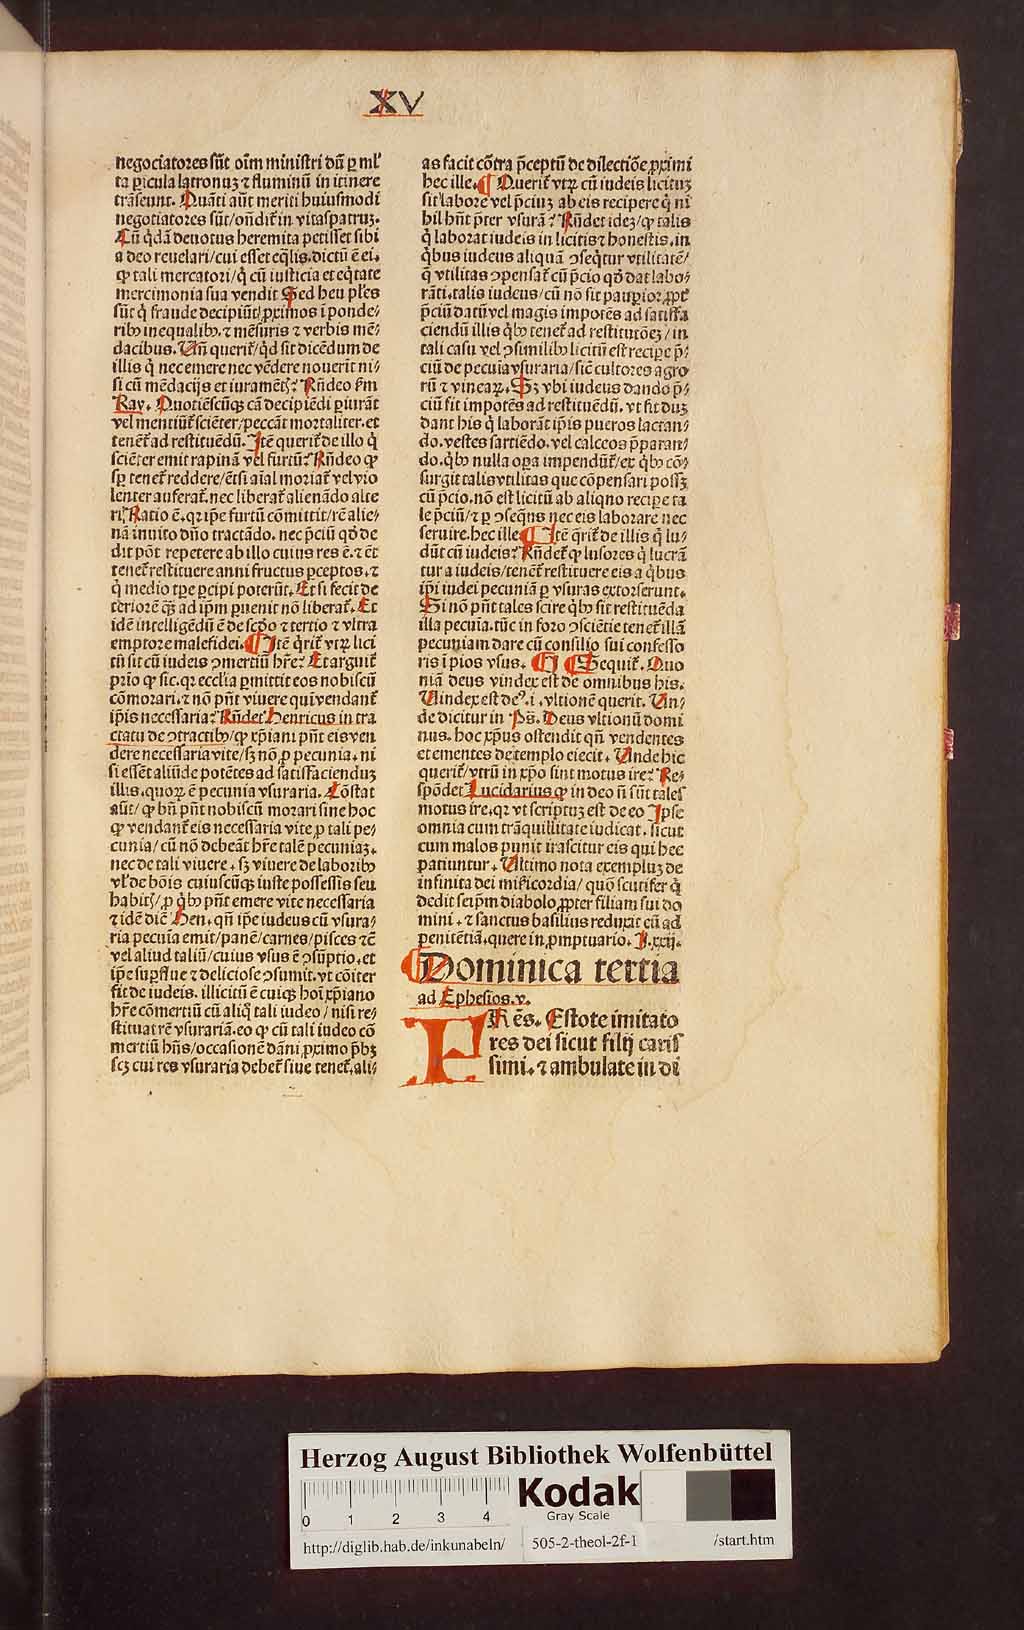 XV
negociatores sūt oīm ministri dū ꝑ ml̓
ta ꝑicula latronuꝫ ⁊ fluminū in itinere
trāseunt. Quāti aūt meriti huiusmodi
negotiatores sūt/ oñdit̄ in vitaspatruꝫ.
Cū q̄dā deuotus heremita petisset sibi
a deo reuelari/ cui esset eq̄lis. dictū ē ei.
ꝙ tali mercatori/ q̄ cū iusticia et eq̄tate
mercimonia sua vendit Sed heu pl̄es
sūt q̄ fraude decipiūt ꝓximos ī ponde⸗
ribꝰ inequalibꝰ. ⁊ mēsuris ⁊ verbis mē⸗
dacibus. Vñ querit̄/ qͥd sit dicēdum de
illis q̄ nec emere nec vēdere nouerīt ni⸗
si cū mēdacijs et iuramēt̄ꝭ? Rñdeo ẜm
Ray. Quotiēscūqꝫ cā decipiēdi ꝑiurāt
vel mentiūt̄ sciēter/ peccāt mortaliter. et
tenēt̄ ad restituēdū. Itē querit̄ de illo q̄
sciēter emit rapinā vel furtū? Rñdeo ꝙ
sꝑ tenet̄ reddere/ etsi aīal moriat̄ vel vio
lenter auferat̄. nec liberat̄ alienādo alte
ri. Ratio ē. qꝛ ip̄e furtū cōmittit/ rē alie⸗
nā inuito dño tractādo. nec p̄ciū qd̄ de
dit pōt repetere ab illo cuius res ē. ⁊ ēt
tenet̄ restituere anni fructus ꝑceptos. ⁊
q̄ medio tp̄e ꝑcipi poterūt. Et si fecit de
teriorē qꝫ ad ip̄m ꝑuenit nō liberat̄. Et
idē intelligēdū ē de scd̄o ⁊ tertio ⁊ vltra
emptore malefidei. ¶ Itē q̄rit̄ vtꝝ lici
tū sit cū iudeis ↄmertiū hr̄e? Et arguit̄
prīo ꝙ sic. qꝛ ecclīa ꝑmittit eos nobiscū
cōmorari. ⁊ nō pn̄t viuere qui vendant̄
ip̄is necessaria? Rñdet Henricus in tra
ctatu de ↄtractibꝰ/ ꝙ xp̄iani pn̄t eis ven
dere necessaria vite/ sꝫ nō ꝓ pecunia. ni
si essēt aliūde potētes ad satisfacienduꝫ
illis. quoꝝ ē pecunia vsuraria. Cōstat
aūt/ ꝙ bñ pn̄t nobiscū morari sine hoc
ꝙ vendant̄ eis necessaria vite ꝓ tali pe⸗
cunia/ cū nō debeāt hr̄e talē pecuniaꝫ.
nec de tali viuere. sꝫ viuere de laboribꝰ
vl̓ de bōis cuiuscūqꝫ iuste possessis seu
habitꝭ/ ꝓ qͥbꝰ pn̄t emere vite necessaria
⁊ idē diē Hen. qn̄ ip̄e iudeus cū vsura⸗
ria pecuīa emit/ panē/ carnes/ pisces ⁊c̄
vel aliud taliū/ cuius vsus ē ↄsūptio. et
ip̄e suꝑflue ⁊ deliciose ↄsumit. vt cōiter
fit de iudeis. illicitū ē cuiqꝫ hoī xp̄iano
hr̄e cōmertiū cū aliq̄ tali iudeo/ nisi re⸗
stituat rē vsurariā. eo ꝙ cū tali iudeo cō
mertiū hn̄s/ occasionē dāni ꝓximo p̄bꝫ
scꝫ cui res vsuraria debet̄ siue tenet̄. ali⸗
as facit cōtra p̄ceptū de dilectiōe ꝓximi
hec ille. ¶ Querit̄ vtꝝ cū iudeis licituꝫ
sit labore vel p̄ciuꝫ ab eis recipere q̄ ni
hil hn̄t p̄ter vsurā? Rñdet ideꝫ/ ꝙ talis
q̄ laborat iudeis in licitis ⁊ honestis. in
qͥbus iudeus aliquā ↄseq̄tur vtilitatē/
q̄ vtilitas ↄpensat̄ cū p̄cio qd̄ dat labo⸗
rāti. talis iudeus/ cū nō sit pauꝑior ꝓpt̓
p̄ciū datū vel magis impotēs ad satisfa
ciendū illis qͥbꝰ tenet̄ ad restitutōeꝫ/ in
tali casu vel ↄsimilibꝰ licitū est reciꝑe p̄⸗
ciū de pecuīa vsuraria/ sic̄ cultores agro
rū ⁊ vineaꝝ. Sꝫ vbi iudeus dando p̄⸗
ciū fit impotēs ad restituēdū. vt fit duꝫ
dant his q̄ laborāt ip̄is pueros lactan⸗
do. vestes sartiēdo. vel calceos p̄paran⸗
do. qͥbꝰ nulla oꝑa impendūt̄/ ex qͥbꝰ cō⸗
surgit talis vtilitas que cōpensari possꝫ
cū p̄cio. nō est licitū ab aliqno reciꝑe ta
le p̄ciū/ ⁊ ꝑ ↄseq̄ns nec eis laborare nec
seruire. hec ille ¶ Itē q̄rit̄ de illis q̄ lu⸗
dūt cū iudeis? Rñdet̄ ꝙ lusores q̄ lucrā
tur a iudeis/ tenēt̄ restituere eis a qͥbus
ip̄i iudei pecuniā ꝑ vsuras extorserunt.
Si nō pn̄t tales scire qͥbꝰ sit restituēda
illa pecuīa. tūc in foro ↄsciētie tenet̄ illā
pecuniam dare cū consilio sui confesso
ris ī pios vsus. ¶ ¶ Sequit̄. Quo
niā deus vindex est de omnibus his.
Vindex est deꝰ. i. vltionē querit. Vn⸗
de dicitur in Ps̄. Deus vltionū domi
nus. hoc xp̄us ostendit qn̄ vendentes
et ementes de templo eiecit. Vnde hic
querit̄/ vtrū in xp̄o sint motus ire? Re⸗
spōdet Lucidarius ꝙ in deo nō sūt tales
motus ire. qꝛ vt scriptuꝫ est de eo Ipse
omnia cum trāquillitate iudicat. sicut
cum malos punit irascitur eis qui hec
patiuntur. Vltimo nota exempluꝫ de
infinita dei mīsericordia/ quō scutifer q̄
dedit seip̄m diabolo ꝓpter filiam sui do
mini. ⁊ sanctus basilius reduxit eū ad
penitētiā. quere in ꝓmptuario. P. xxij.
Dominica tertia
ad Ephesios. v.
FRēs. Estote imitato
res dei sicut filij caris
simi. ⁊ ambulate in di
Herzog August Bibliothek Wolfenbüttel
0 1 2 3 4
Kodak
Gray Scale
http://diglib.hab.de/inkunabeln/ 505-2-theol-2f-1 /start.htm